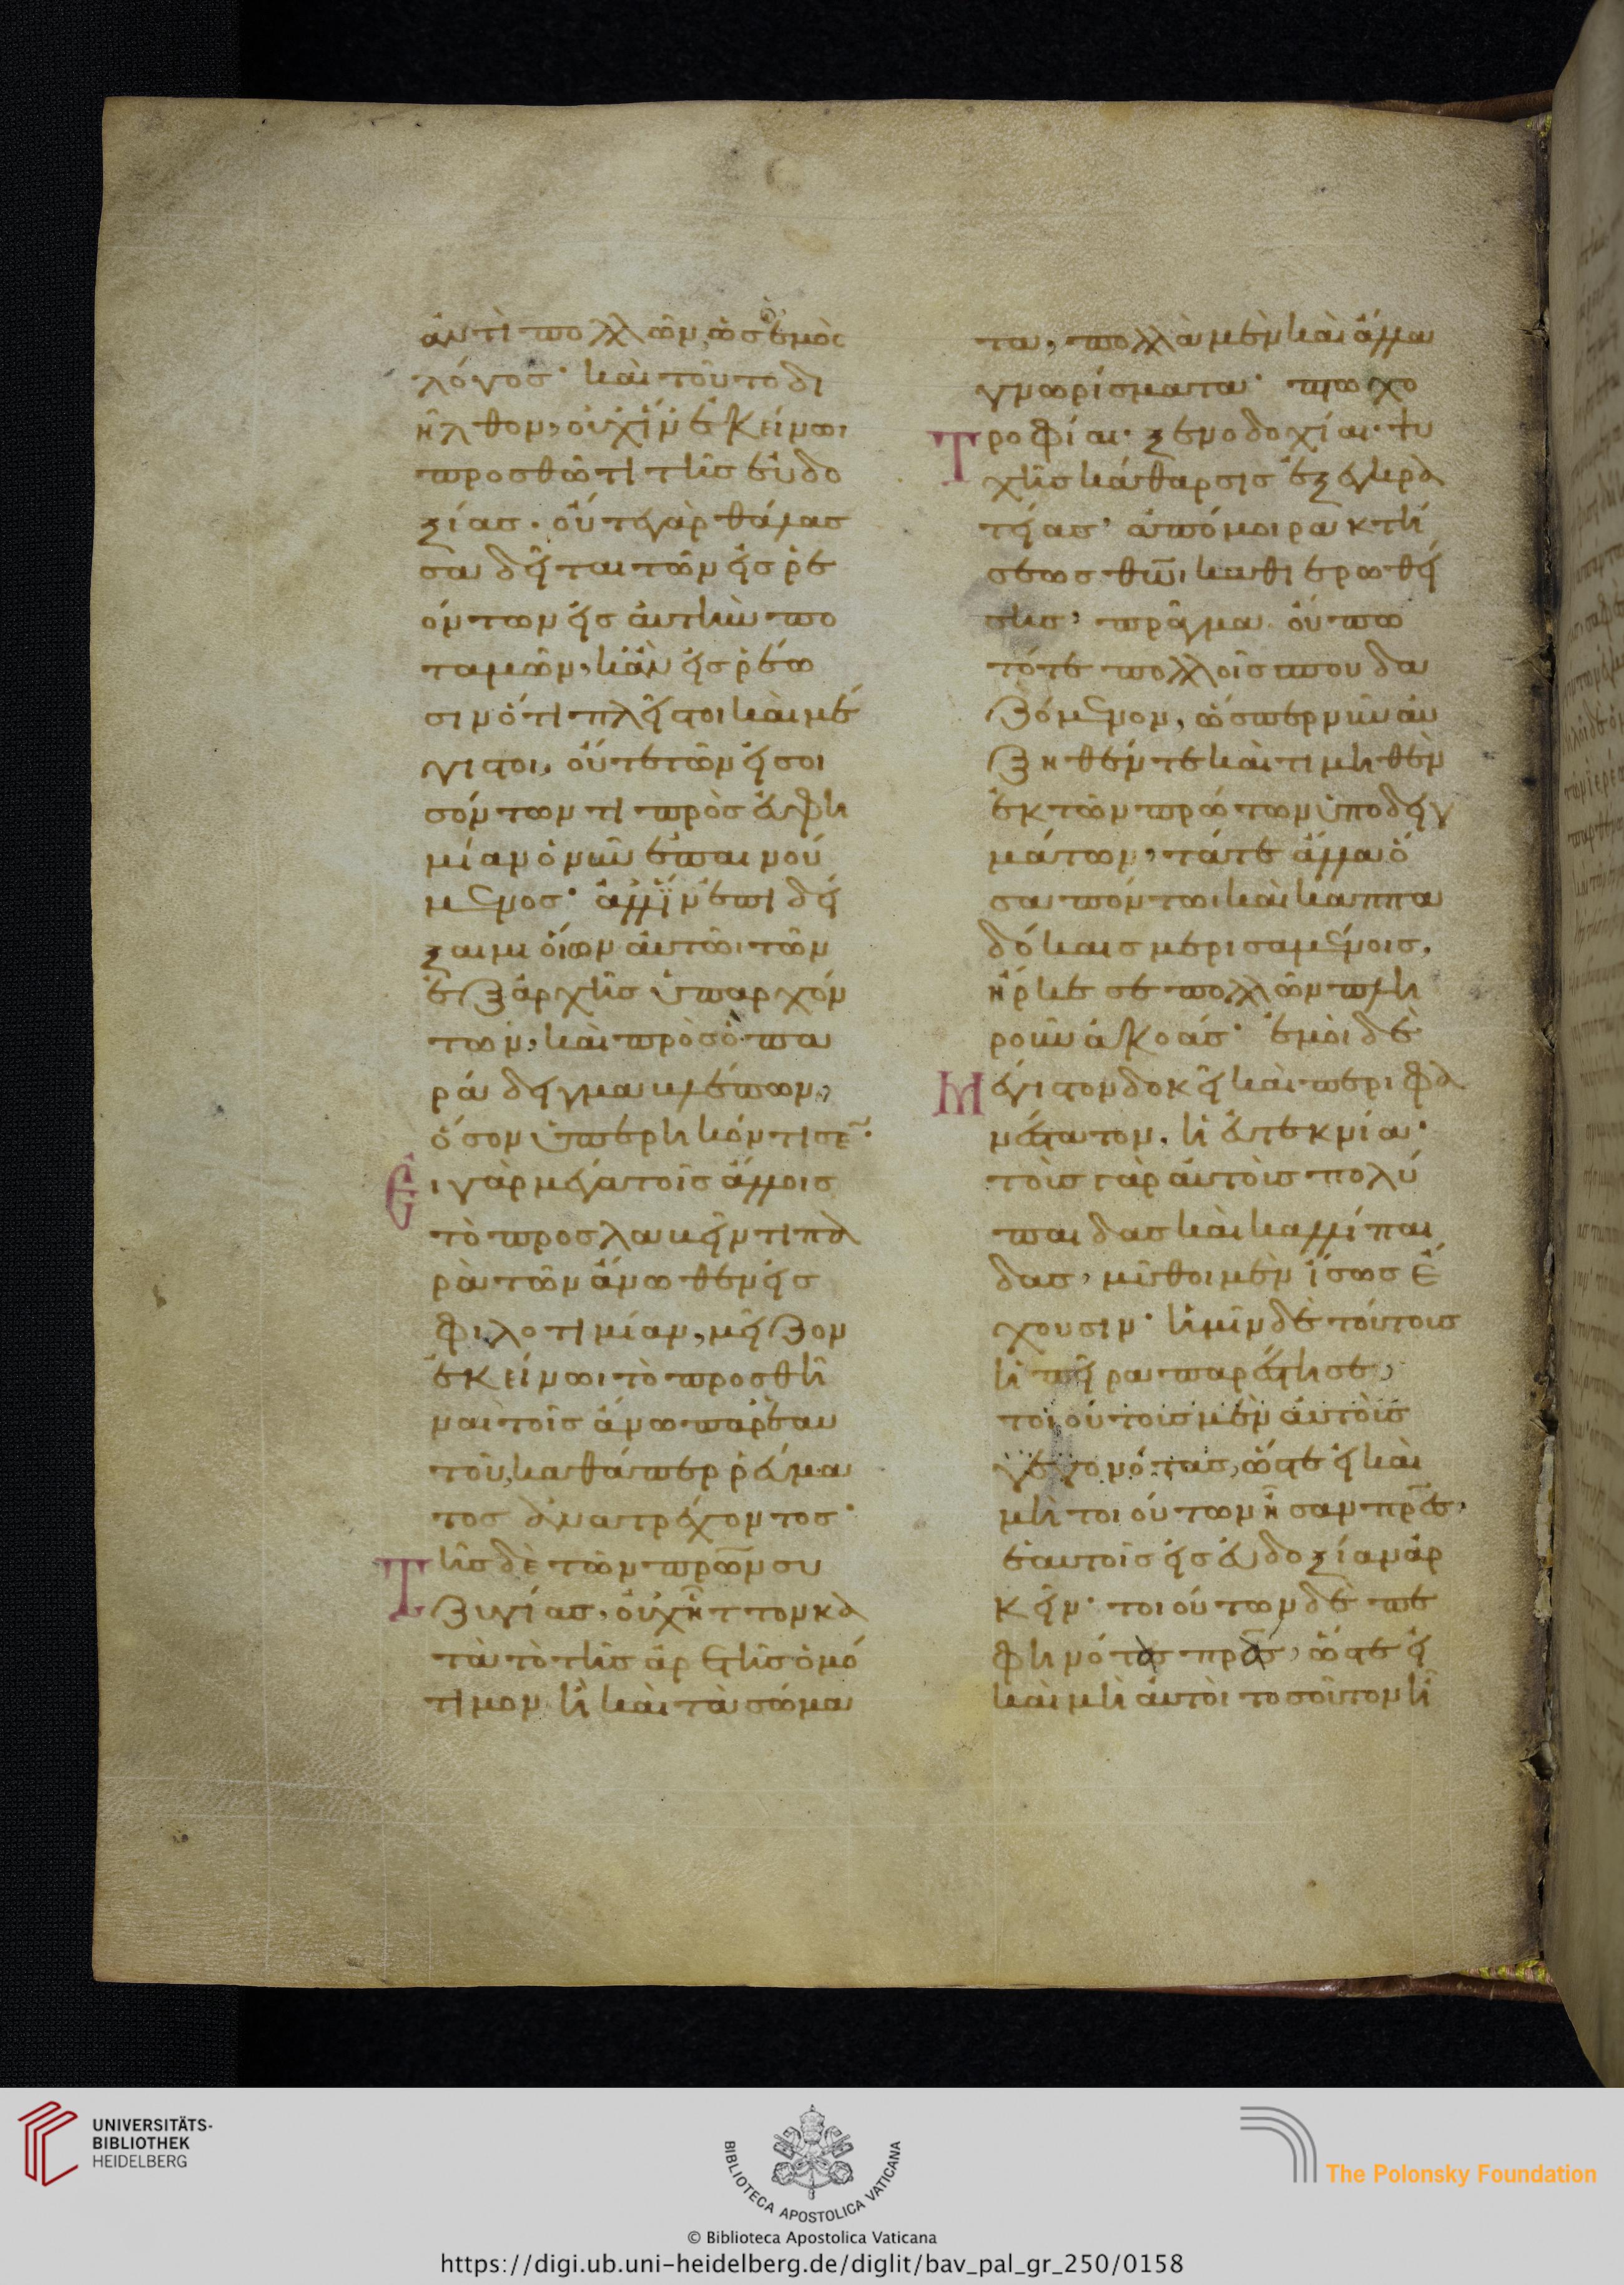 ἀντὶ πολλῶν, ὡς ὁ ἐμὸς
λόγος· καὶ τοῦτο δι
ῆλθον, οὐχ ἵν' ἐκείνωι
προσθῶ τι τῆς εὐδο
ξίας· οὔτε γὰρ θάλασ
σα δεῖται τῶν εἰσρε
όντων εἰς αὐτὴν πο
ταμῶν, κἂν εἰσρέω
σιν ὅτι πλεῖστοι καὶ μέ
γιστοι, οὔτε τῶν εἰσοι
σόντων τι πρὸς εὐφη
μίαν ὁ νῦν ἐπαινού
μενος· ἀλλ' ἵν' ἐπιδεί
ξαιμι οἵων αὐτῶι τῶν
ἐξ ἀρχῆς ὑπαρχόν
των, καὶ πρὸς ὃ πα
ράδειγμα βλέπων,
ὅσον ὑπερηκόντισε·
Εἰ γὰρ μέγα τοῖς ἄλλοις
τὸ προσλαβεῖν τι πα
ρὰ τῶν ἄνωθεν εἰς
φιλοτιμίαν, μεῖζον
ἐκείνωι τὸ προσθῆ
ναι τοῖς ἄνω παρ' ἑαυ
τοῦ, καθάπερ ῥεύμα
τος ἀνατρέχοντος·
Τῆς δὲ τῶν πρων συ
ζυγίας, οὐχ ἧττον κα
τὰ τὸ τῆς ἀρετῆς ὁμό
τιμον ἢ κατὰ σώμα
τα, πολλὰ μὲν καὶ ἄλλα
γνωρίσματα· πτωχο
Τροφίαι· ξενοδοχίαι· ψυ
χῆς κάθαρσις ἐξ ἐγκρα
τείας· ἀπόμοιρα κτή
σεως θωι καθιερωθεί
σης, πρᾶγμα οὔπω
τότε πολλοῖς σπουδα
ζόμενον, ὥσπερ νῦν αὐ
ξηθέν τε καὶ τιμηθὲν
ἐκ τῶν πρώτων ὑποδειγ
μάτων, τά τε ἄλλα ὅ
σα πόντωι καὶ καππα
δόκαις μερισαμένοις,
ἤρκεσε πολλῶν πλη
ροῦν ἀκοάς· ἐμοὶ δὲ
Μέγιστον δοκεῖ καὶ περιφα
νέστατον, ἡ εὐτεκνία·
τοὺς γὰρ αὐτοὺς πολύ
παιδας καὶ καλλίπαι
δας, μῦθοι μὲν ἴσως ἔ
χουσιν· ἡμῖν δὲ τούτους
ἡ πεῖρα παρέστησε,
τοιούτους μὲν αὐτοὺς
γεγονότας, ὥστε εἰ καὶ
μὴ τοιούτων ἦσαν πρες,
ἑαυτοῖς εἰς εὐδοξίαν ἀρ
κεῖν· τοιούτων δὲ πε
φηνότας πρας, ὥστε εἰ
καὶ μὴ αὐτοὶ τοσοῦτον ἦ
UNIVERSITÄTS-
BIBLIOTHEK
HEIDELBERG
BIBLIOTECA APOSTOLICA VATICANA
The Polonsky Foundation
© Biblioteca Apostolica Vaticana
https://digi.ub.uni-heidelberg.de/diglit/bav_pal_gr_250/0158